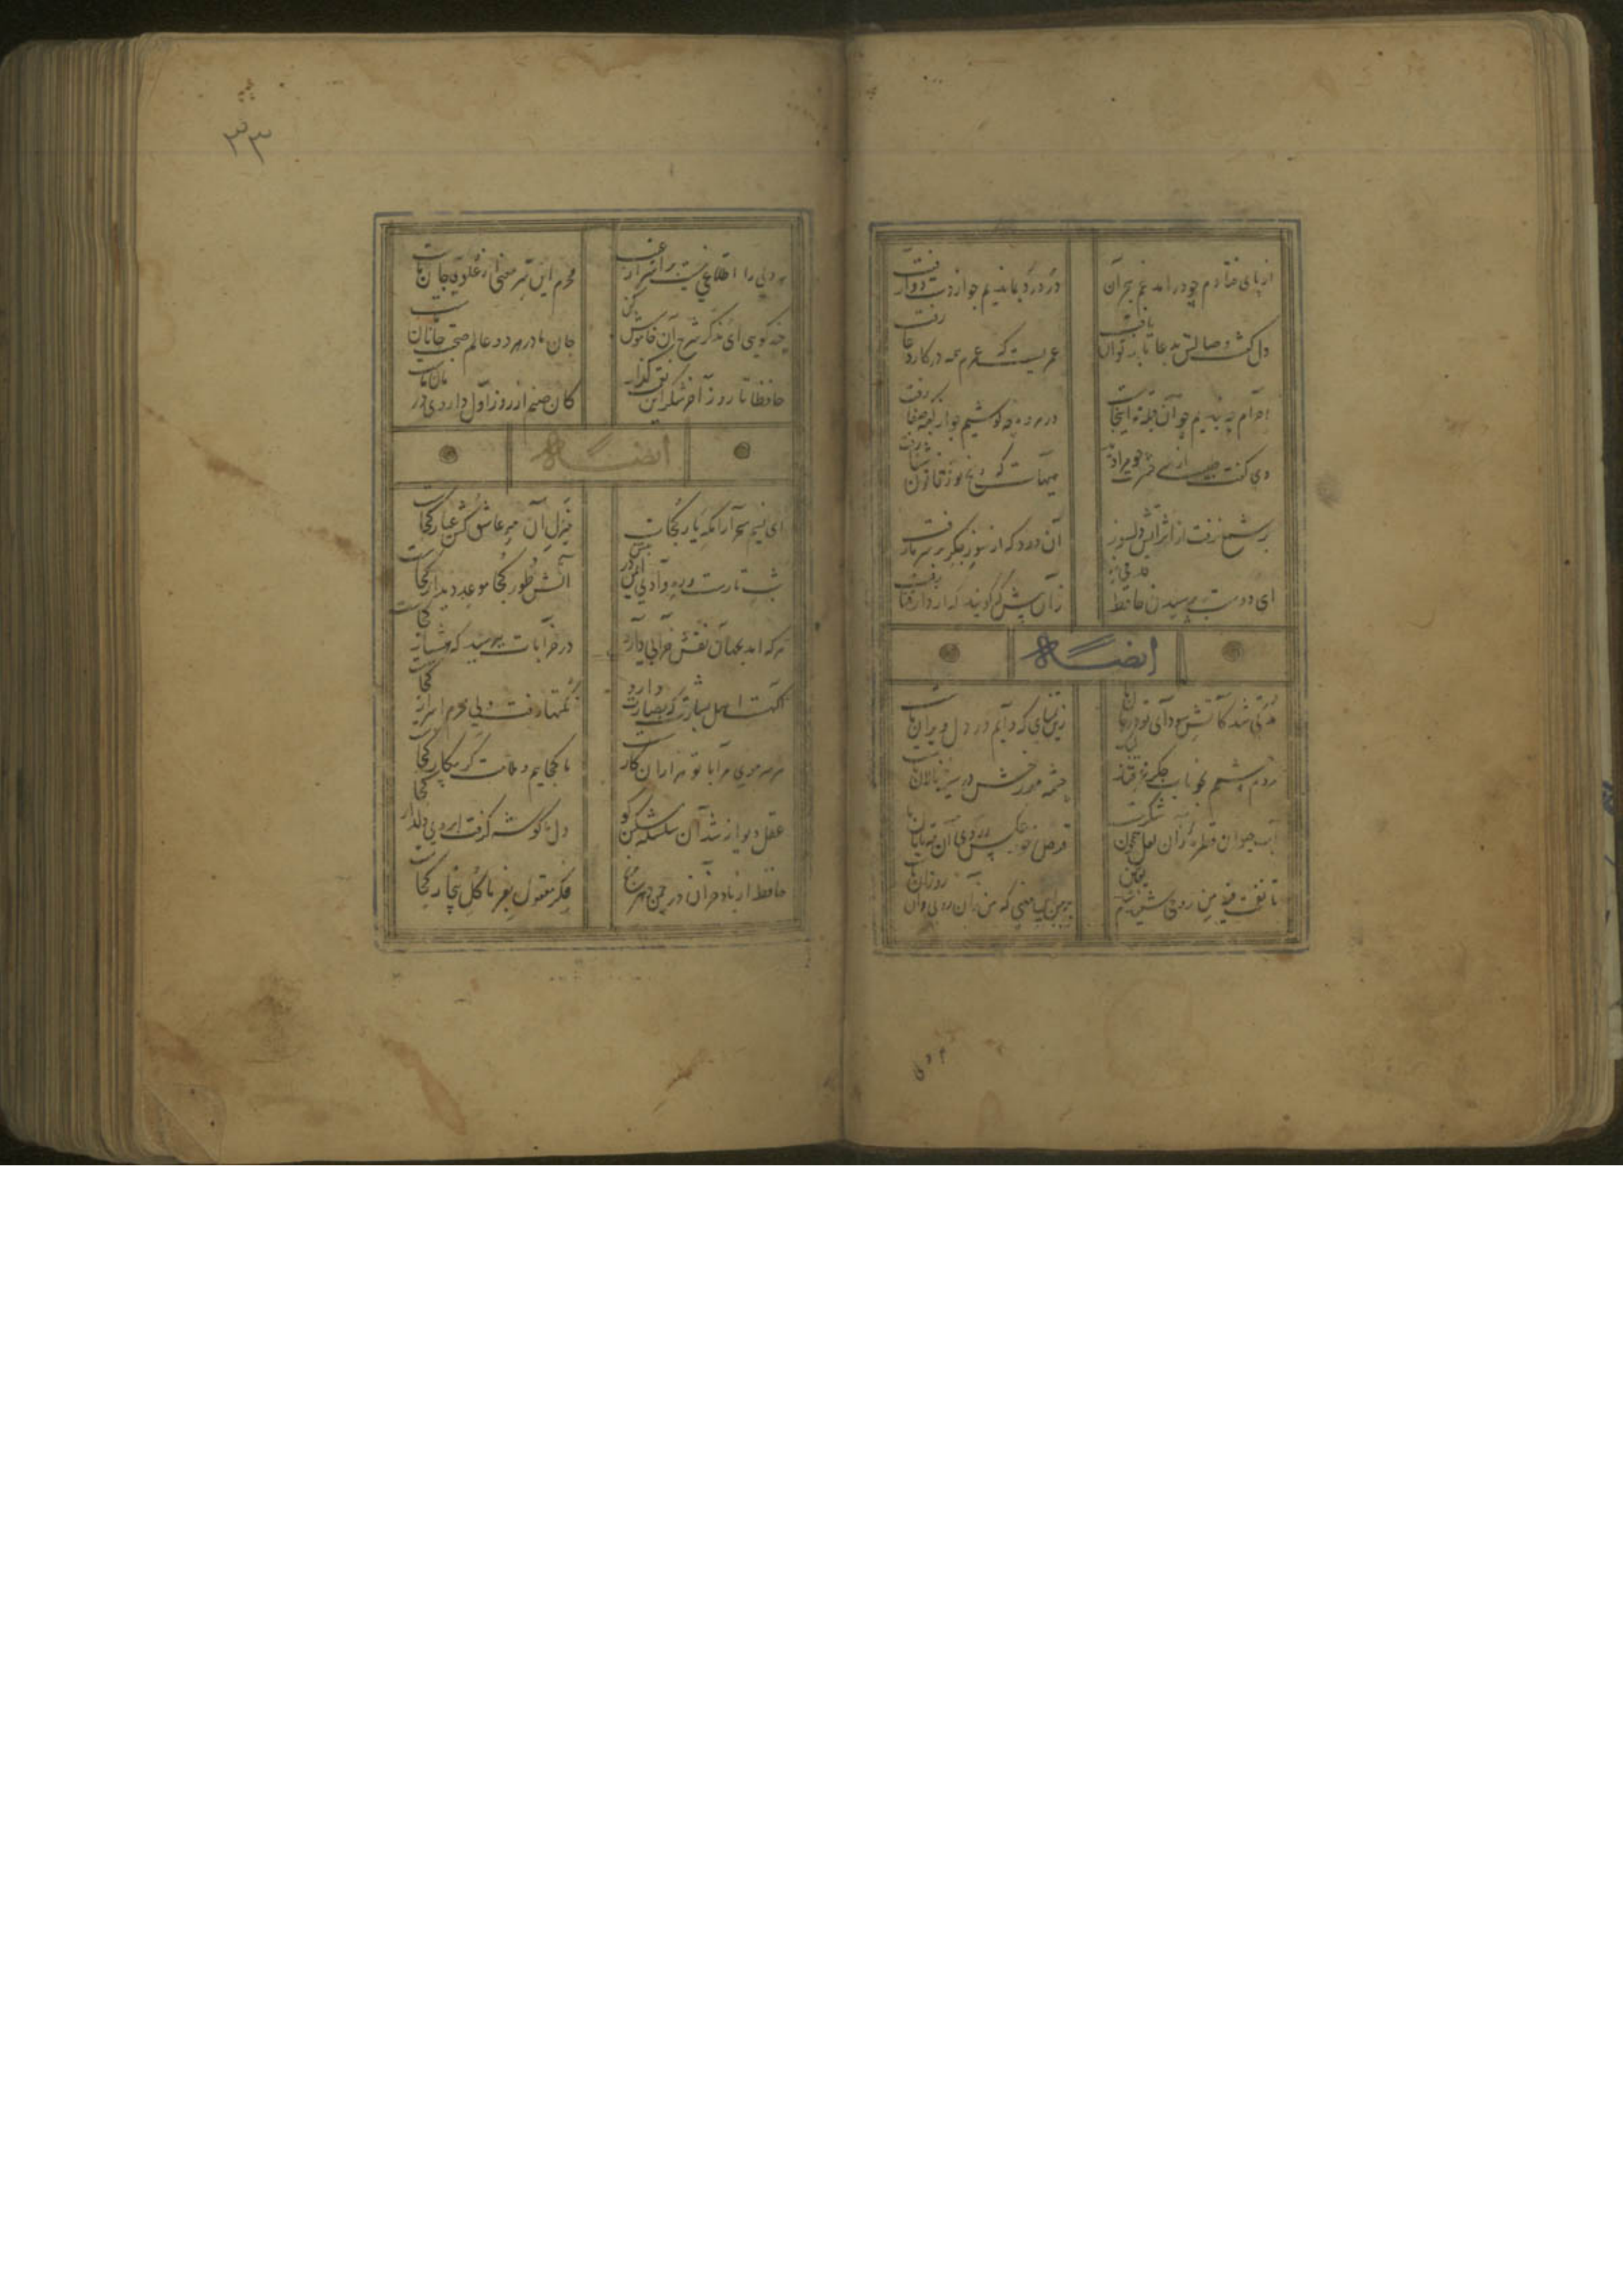 از پای فتادم چو درامد غم هجران
در درد بماندیم چو از دست دوا رفت
دل گفت وصالش بدعا باز توان یافت
عمریست که عمرم همه در کار دعا رفت
احرام چه بندیم چو آن قبله نه اینجاست
در مروه چه کوشیم چو از کعبه صفا رفت
دی گفت طبیب از سر حسرت چو مرا دید
هیهات که رنج تو ز قانون شفا رفت
بر شمع نرفت از اثر آتش دلسوز
آن دود که از سوز جگر بر سر ما رفت
ای دوست بپرسیدن حافظ قدمی نه
زان پیش که گویند که از دار فنا رفت
ایضاً
مدتی شد کآتش سودای تو در جان
زین تمنای که دایم در دل ویران ماست
مردم چشمم بخوناب جگر غرقند
چشمه مهر رخش در سینه نالان ماست
آب حیوان قطره زان لعل همچون شکرست
قرص خور عکس ز روی آن مه تابان ماست
تا نفخت فیه من روحی شنیدم
بر من این معنی که من زان وی و وی زان ماست
هر دلی را اطلاعی نیست بر اسرار
محرم این سر معنی دار علوی جان ماست
چند کویی ای مذکر شرح آن خاموش
جان ما در هر دو عالم صحبت جانان
حافظا تا روز آخر شکر این نعمت گذار
کان صنم از روز اول داروی درمان ماست
ایضاً
ای نسیم سحر آرامگه یار کجاست
منزل آن مه عاشق کش عیار کجاست
شب تارست و ره وادی ایمن در پیش
آتش طور کجا موعد دیدار کجاست
هر که امد بجهان نقش خرابی دارد
در خرابات بپرسید که هشیار کجاست
آنکست اهل بشارت که اشارت دارد
نکتها هست ولی محرم اسرار کجاست
هر سر موی مرا با تو هزاران کارست
ما کجاییم و ملامت گر بیکار کجاست
عقل دیوانه شد آن سلسله مشکین کو
دل ز ما گوشه گرفت ابروی دلدار کجاست
حافظ از باد خزان در چمن دهر مرنج
فکر معقول بفرما گل بیخار کجاست
۳۳